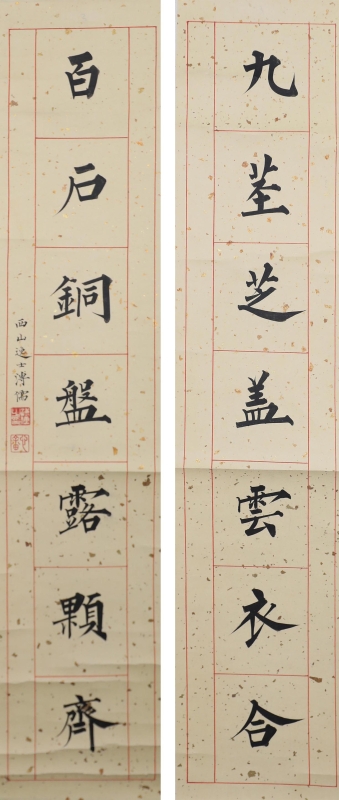 九茎芝盖雲衣合
百石銅盤露顆齊
西山逸士溥儒